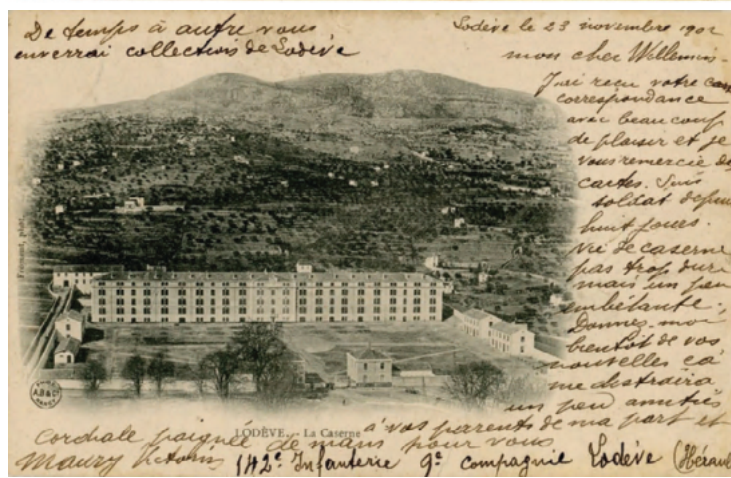 De temps à autre vous
enverrai collections de Lodève
Lodève le 23 novembre 1902
mon cher Willemin
J'ai reçu votre carte
correspondance
avec beaucoup
de plaisir et je
vous remercie des
cartes. Suis
soldat depuis
huit jours.
Vie de caserne
pas trop dure
mais un peu
embêtante.
Donnez-moi
bientôt de vos
nouvelles ça
me distraira
un peu amitiés
à vos parents de ma part et
cordiale poignée de mains pour vous
Maury
142e Infanterie 9e Compagnie Lodève (Hérault
LODÈVE. - La Caserne
phot.
A.B.&C
NANCY